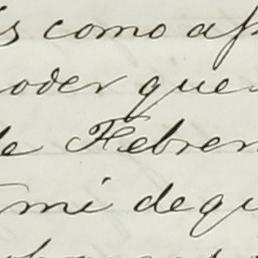 s como as
oder que
de Febrer
mi de qu